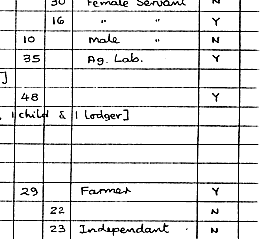 30 Female Servant N
16 " " Y
10 Male " N
35 Ag. Lab. Y
]
48 Y
1 child & 1 lodger]
29 Farmer Y
22 N
23 Independant N